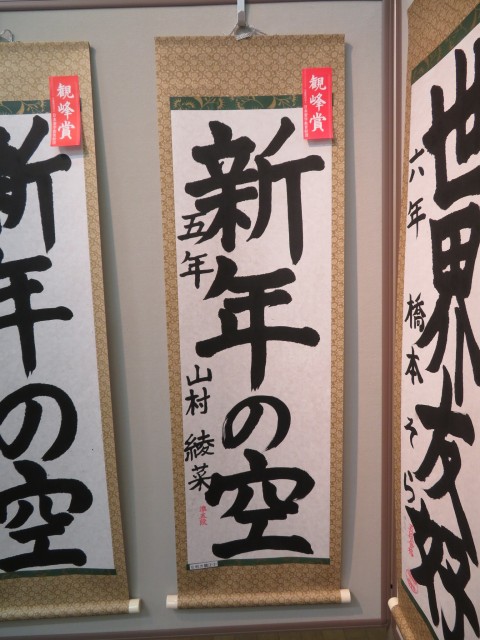 世界友好
六年 橋本そら
観峰賞
新年の空
五年 山村 綾菜
観峰賞
新年の空